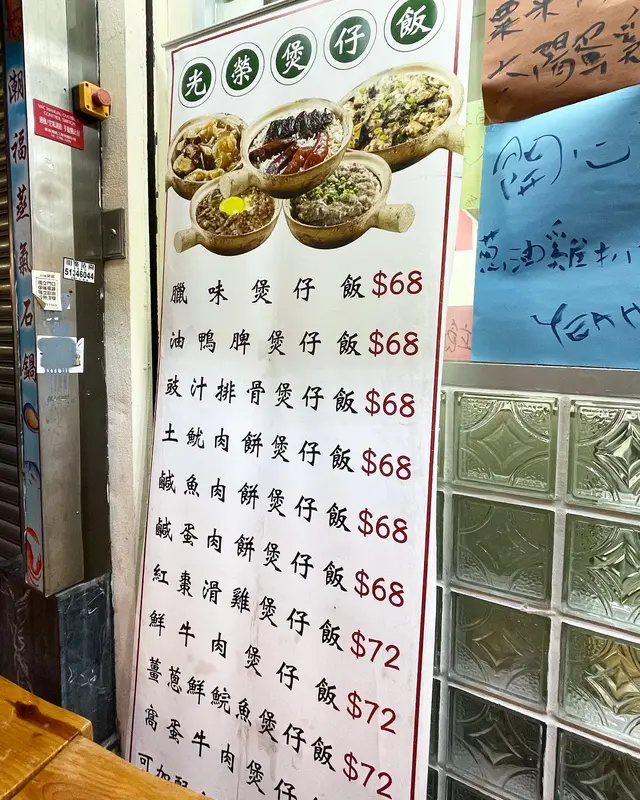 光榮煲仔飯
臘味煲仔飯 $68
油鴨脾煲仔飯 $68
豉汁排骨煲仔飯 $68
土魷肉餅煲仔飯 $68
鹹魚肉餅煲仔飯 $68
鹹蛋肉餅煲仔飯 $68
紅棗滑雞煲仔飯 $72
鮮牛肉煲仔飯 $72
薑蔥鮮鯇魚煲仔飯 $72
窩蛋牛肉煲仔飯
可加配
潮福蒸氣石鍋
粟米
太陽蛋
開心
蔥油雞扒
YEAH